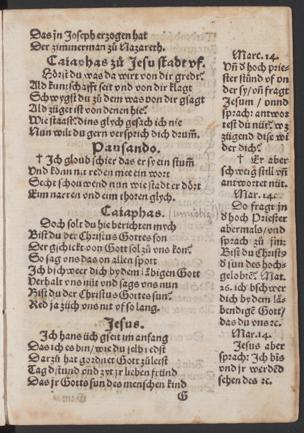 Das jn Joseph erzogen hat
Der zimmerman zů Nazareth.
Cataphas zů Jesu stadt vf.
Hörst du was da wirt von dir gredt
Als kuntschafft seit vnd von dir klagt
Schwygst du zů dem was von dir gsagt
Als züget ist von denen hie
Wie staast dins glych gesach ich nie
Nun wilt du gern versprich dich drum.
Pausando.
† Ich gloub schier das er sy ein stum
Vnd könn nit reden me ein wort
Secht schou wend nun wie stadt er dört
Eim narren vnd eim thoren glych.
Caiaphas.
Doch solt du hie berichten mych
Bist du der Christus Gottes son
Der gschickt von Gott sol zů vns kon
So sag vns das on allen spott
Ich bschweer dich by dem läbigen Gott
Verhalt vns nüt vnd sags vns nun
Bist du der Christus Gottes sun
Red ja züch vns nit vf so lang.
Jesus.
Ich hans üch gseit im anfang
Das ich es bin / wie du selb redst
Darzů hat gordnet Gott zů leest
Tag vnd zyt jr lieben fründ
Das jr Gotts sun des menschen kind
G
Marc. 14.
Vñ d hoch prie-
ster stůnd vf vn
der sy / vñ fragt
Jesum / vnnd
sprach: antwor
test du nüt wz
zügend dise wi
der dich?
† Er aber
schweig still vñ
antwortet nüt.
Mar. 14.
Do fragt jn
d hoch Priester
abermals / vnd
sprach zů jm:
Bist du Christ
d sun des hoch-
gelobtē? Mat.
26. ich bschwer
dich by dem lä-
bendigē Gott /
das du vns ꝛc.
Mar. 14.
Jesus aber
sprach: Ich bin
vnd jr werdēd
sehen des ꝛc.